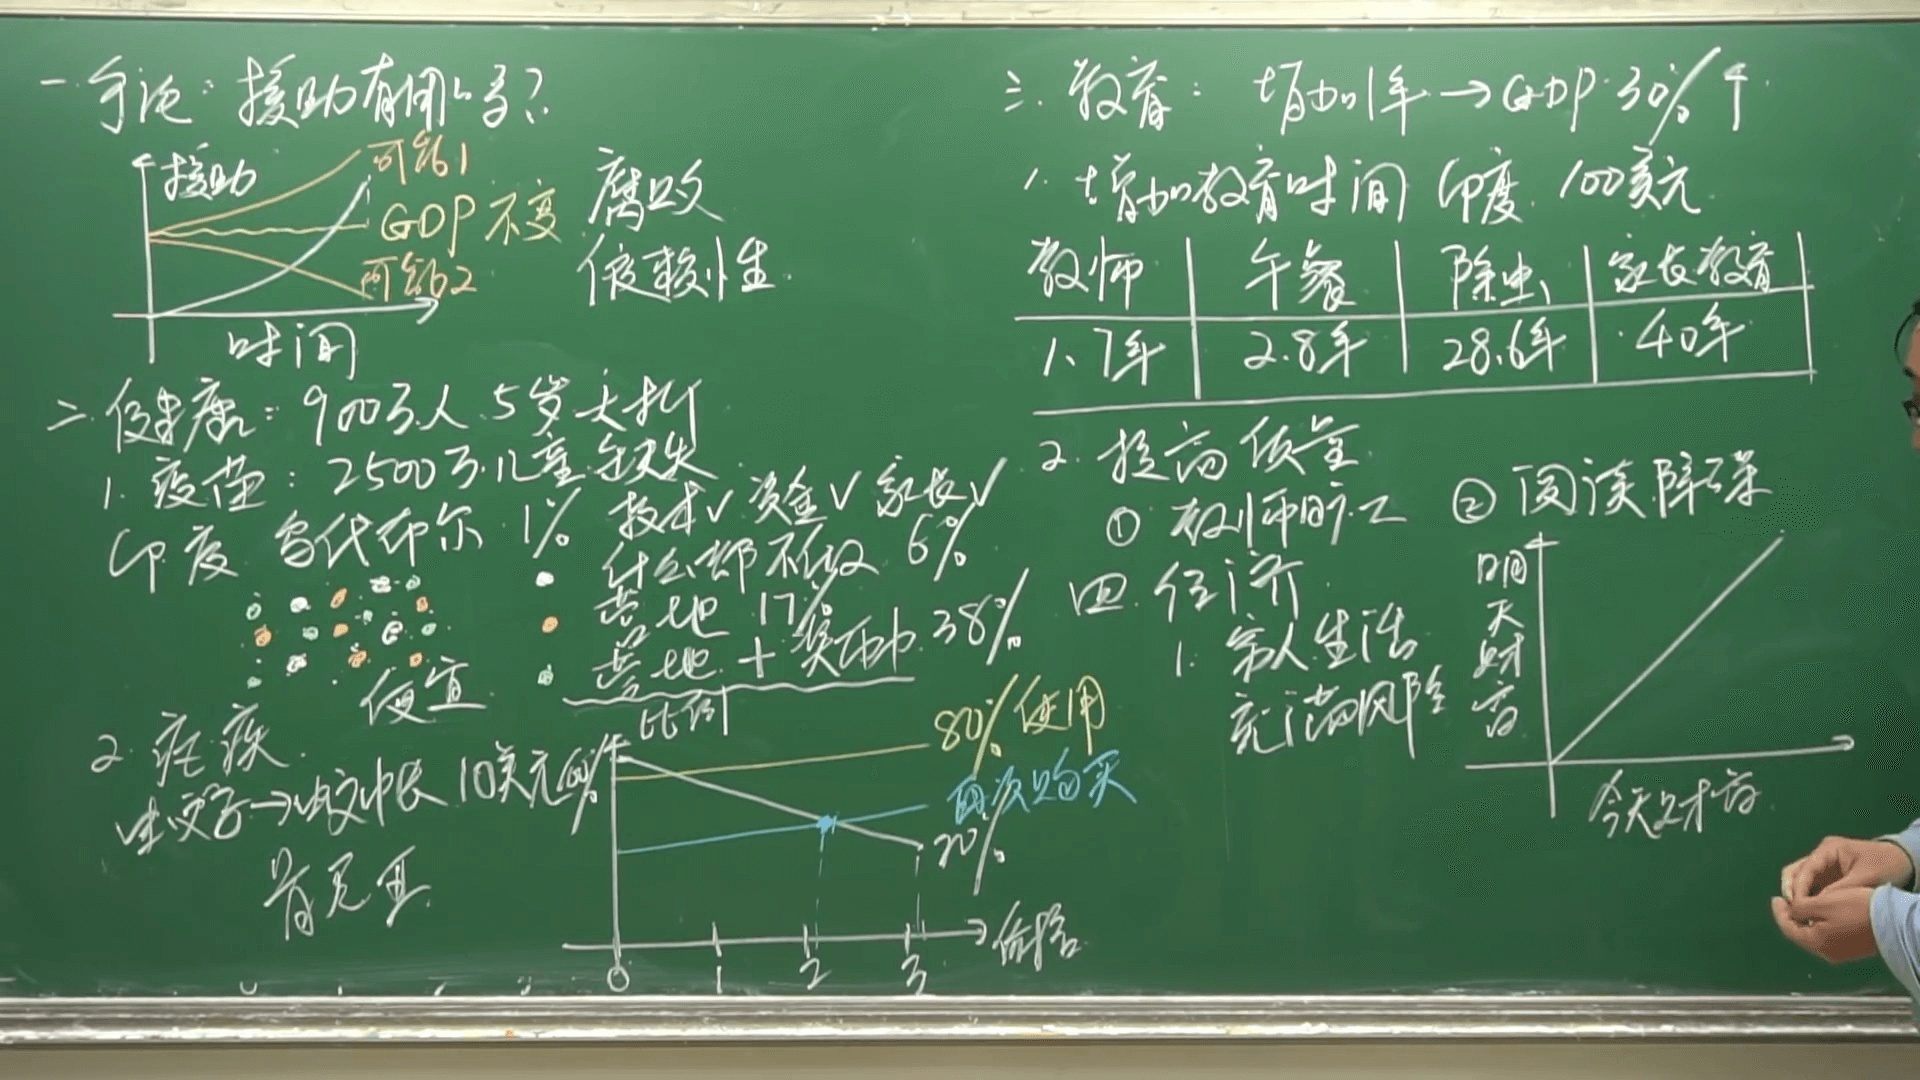 一. 争论: 援助有用吗?
援助
可能1
GDP 不变
可能2
时间
腐败
依赖性
二. 健康: 900万人 5岁夭折
1. 疫苗: 2500万儿童缺失
印度 乌代布尔 1% 技术√ 资金√ 家长√
什么都不做 6%
营地 17%
营地 + 奖励 38%
便宜
2. 疟疾
比例
80% 使用
再次购买
20%
蚊子→蚊帐 10美元
肯尼亚
0 1 2 3
价格
三. 教育: 增加1年→GDP 30%↑
1. 增加教育时间 印度 100美元
教师 午餐 除虫 家长教育
1.7年 2.8年 28.6年 40年
2. 提高质量
① 教师旷工
② 阅读障碍
四. 经济
1. 穷人生活
充满风险
明天财富
今天财富